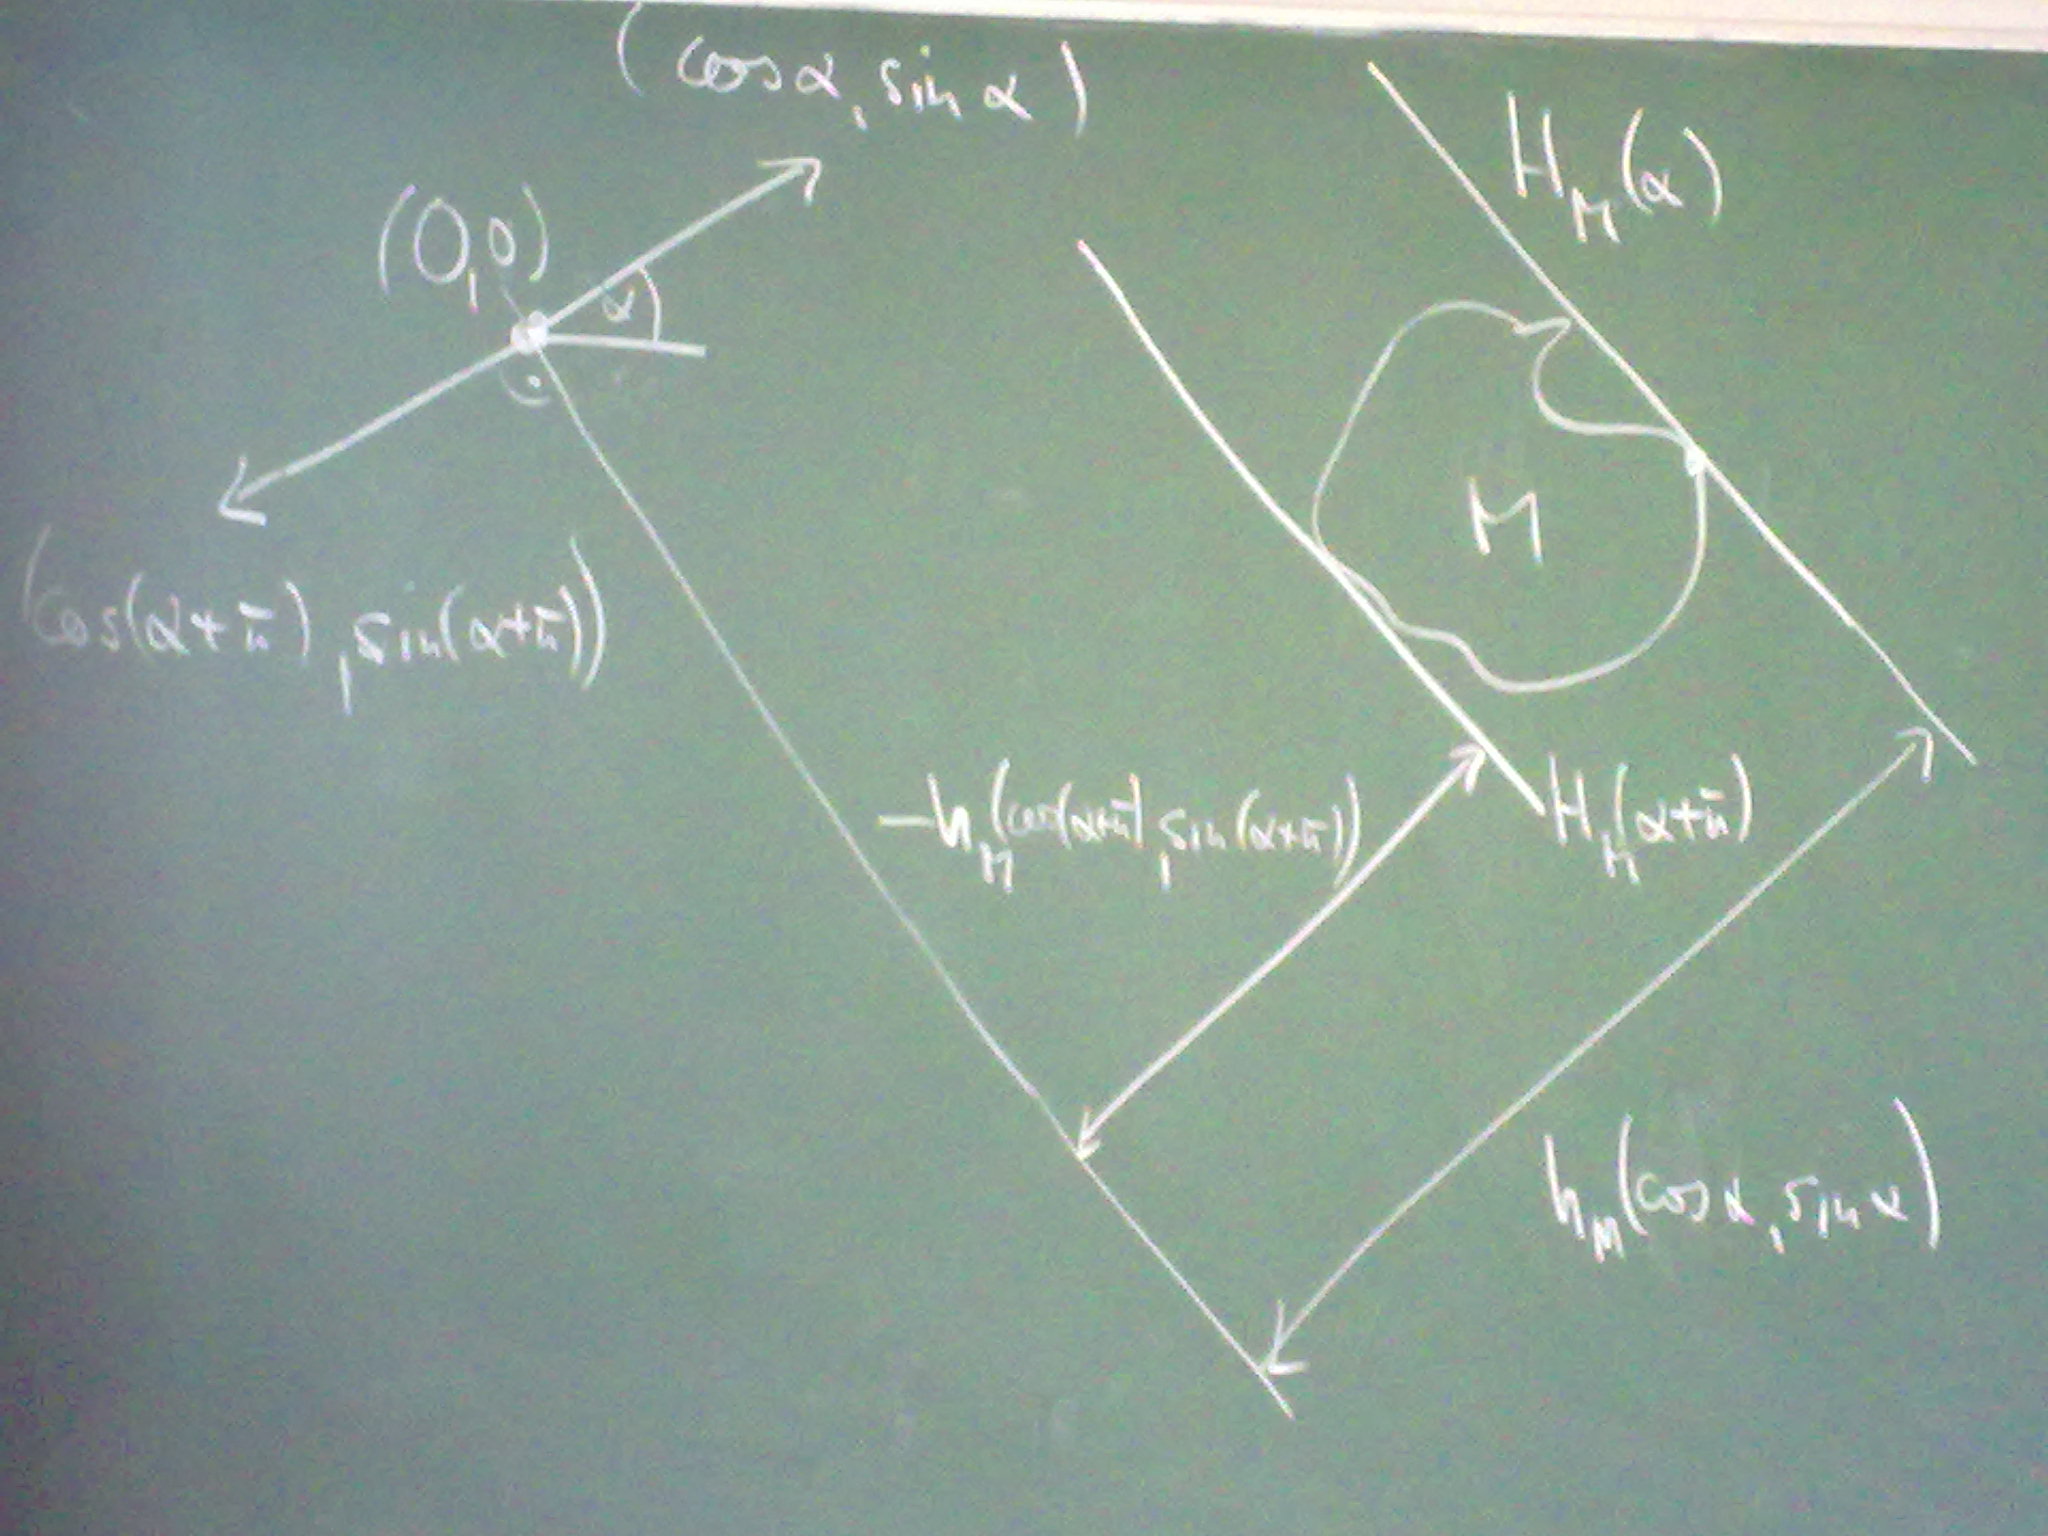 (cos α, sin α)
H_M(α)
(0,0)
α
M
(cos(α+π), sin(α+π))
-h_M(cos(α+π), sin(α+π))
H_M(α+π)
h_M(cos α, sin α)